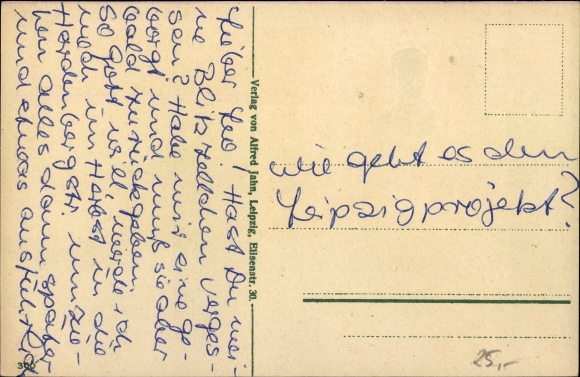 Lieber Leo! Hast Du mei-
ne Blitzröllchen verges-
sen? Habe mir eine ge-
borgt und muß sie aber
bald zurückgeben.
So Gott will, werde ich
noch im Herbst in die
Hardenbergstr. umzie-
hen alles dann später
und etwas ausführl.
Verlag von Alfred Jahn, Leipzig, Elisenstr. 30.
wie geht es dem
Leipzigprojekt?
25,-